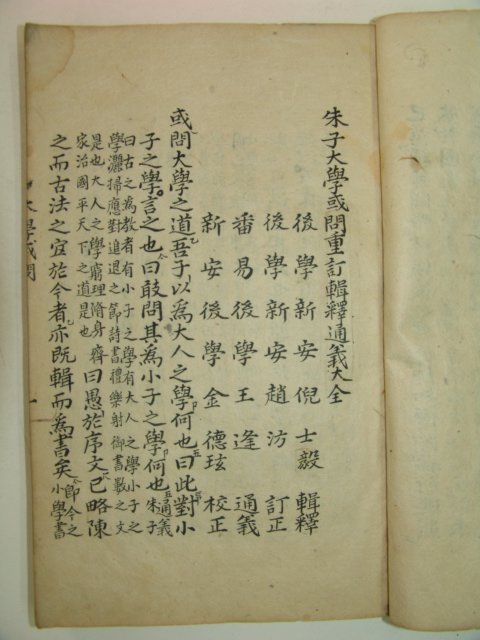 朱子大學或問重訂輯釋通義大全
後學新安倪士毅 輯釋
後學新安趙汸 訂正
番易後學王逢 通義
新安後學金德玹 校正
或問大學之道吾子以爲大人之學何也曰此對小
子之學言之也曰敢問其爲小子之學何也通義朱子
曰古之爲教者有小子之學有大人之學小子之
學灑掃應對進退之節詩書禮樂射御書數之文
是也大人之學窮理脩身齊
家治國平天下之道是也曰愚於序文已略陳
之而古法之宜於今者亦既輯而爲書矣即今之
小學書
大學或問 一